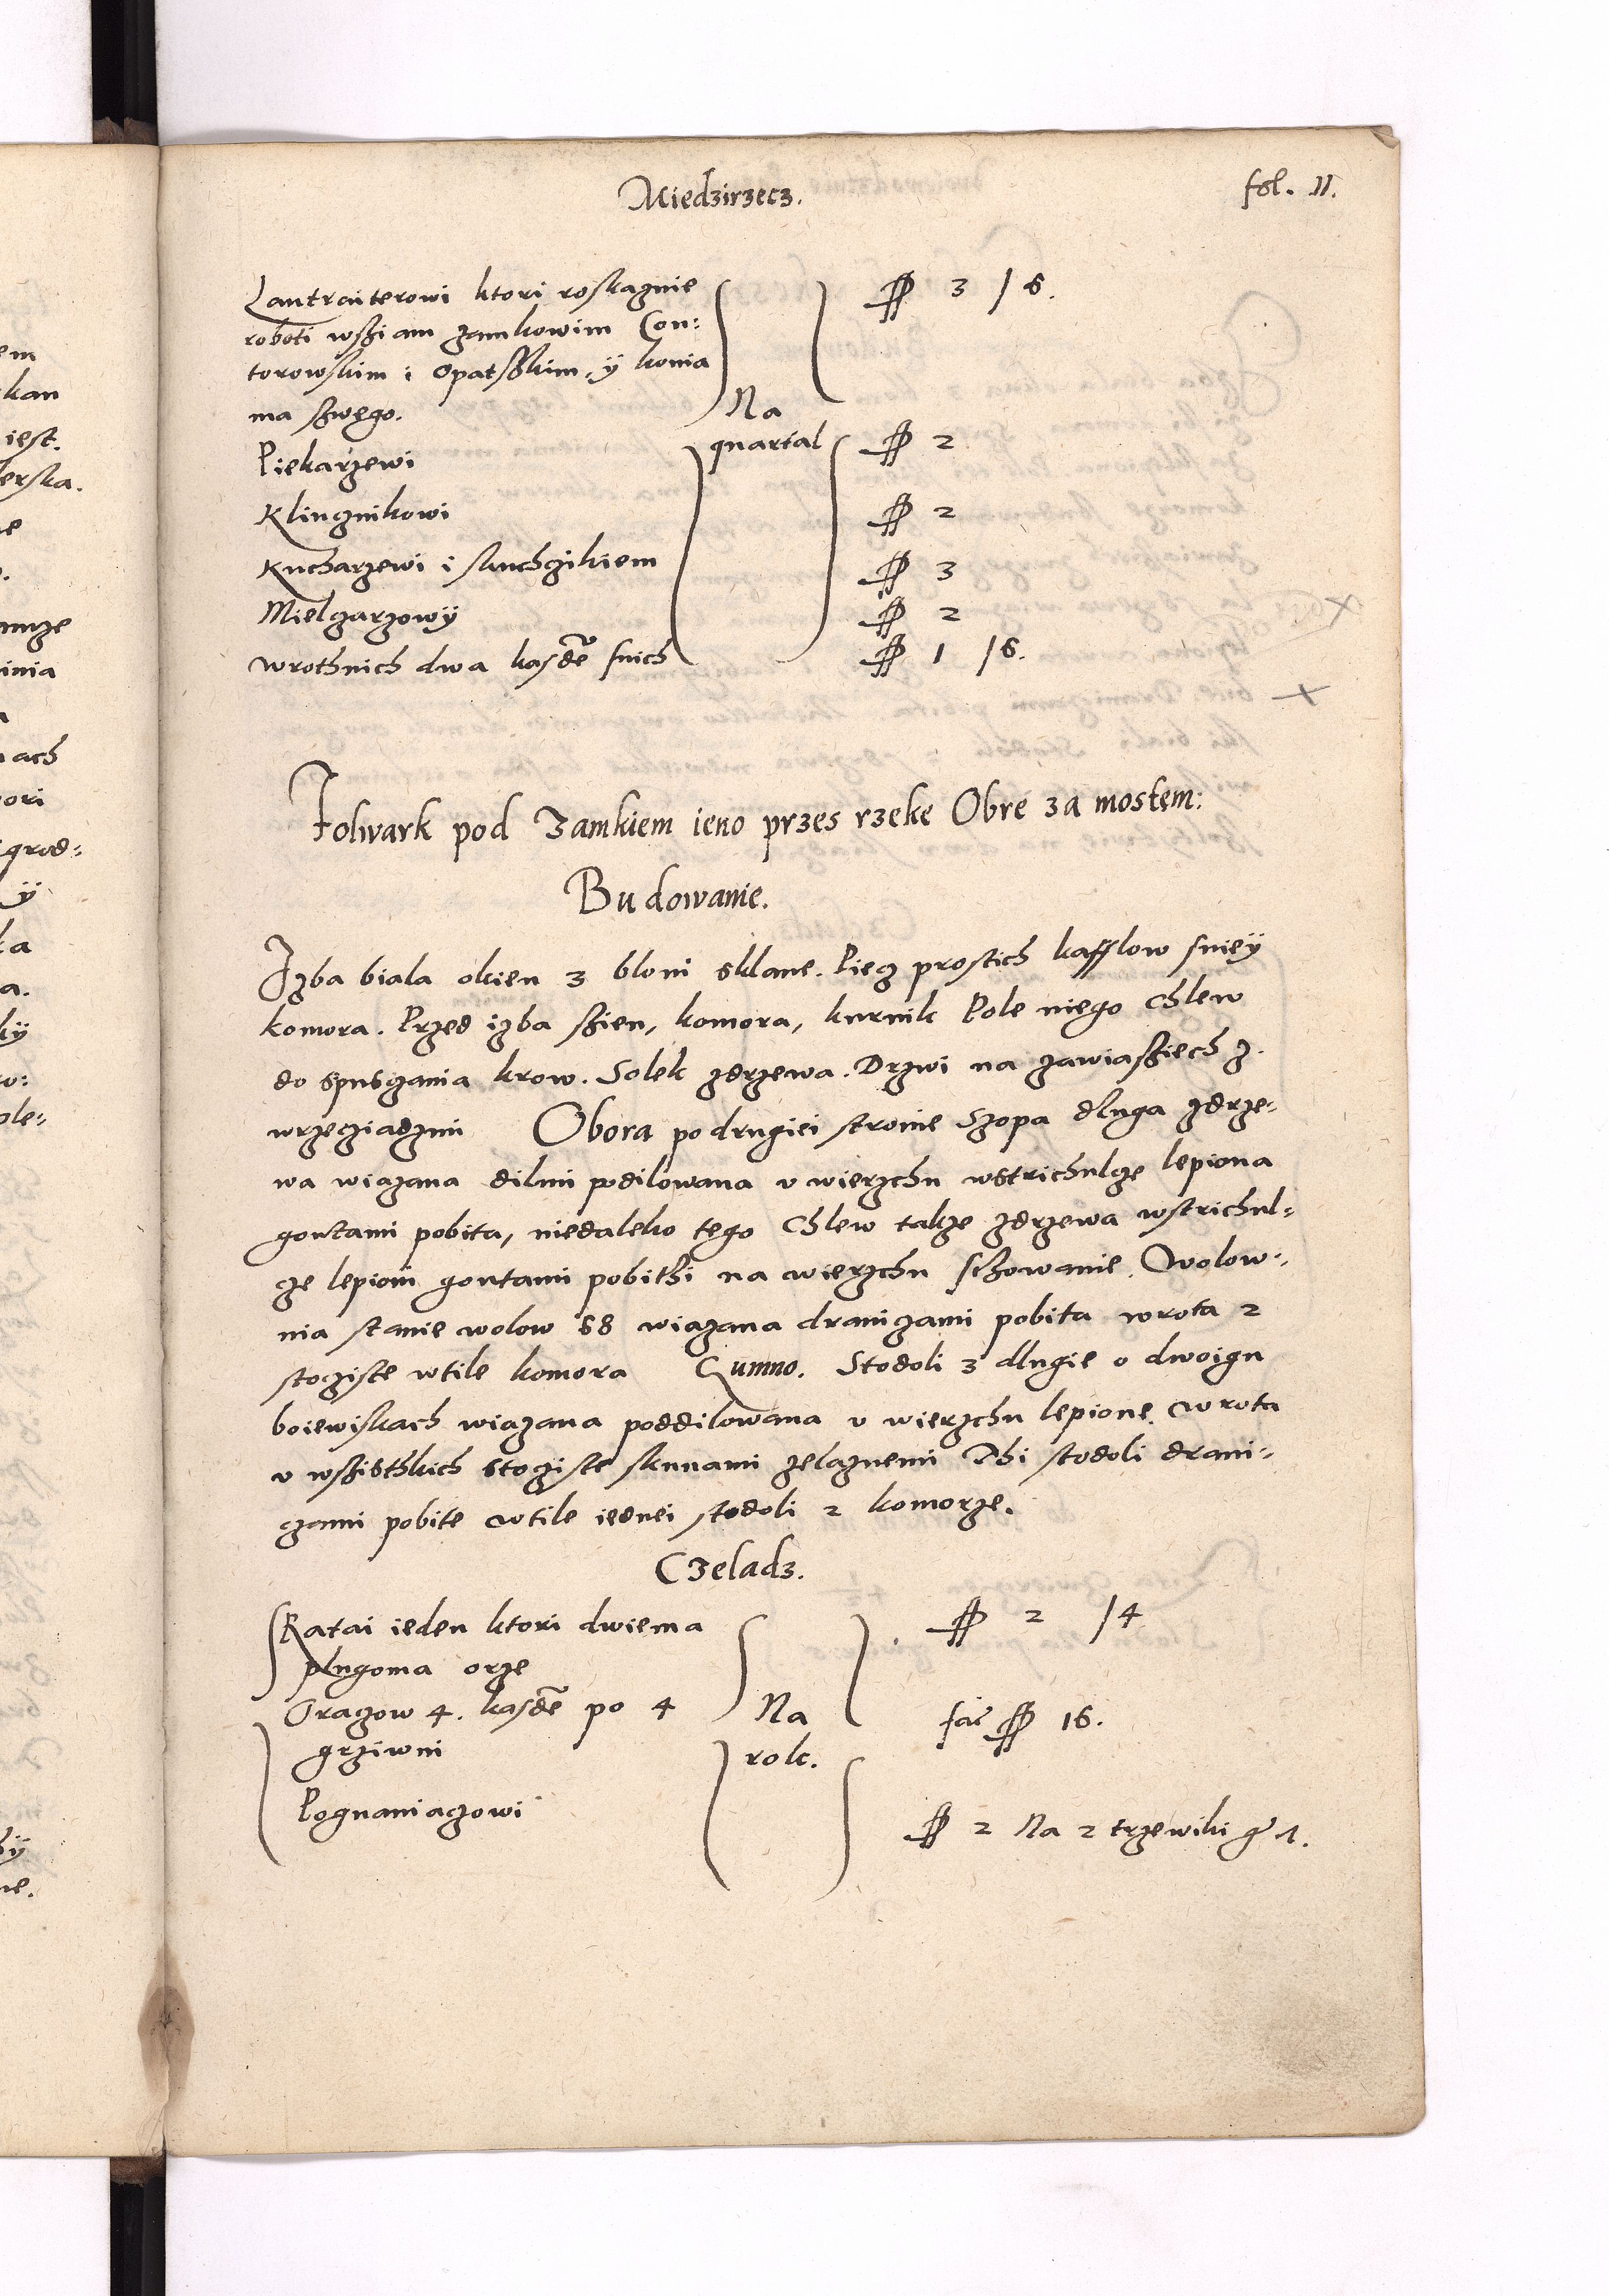 Miedzirzecz.
fol. 11.
Lantraiterowi ktori roskaznie
roboti wssiam zamkowim Con:
torowskim i Opatsskim, ÿ konia
ma sswego.
Na
quartal
3 / 6.
Piekarzewi
2
Klucznikowi
2
Kucharzewi i skuchzikiem
3
Mielczarzowÿ
2
wrothnich dwa kasde snich
1 / 6.
Folwark pod Zamkiem ieno przes rzeke Obre za mostem:
Budowanie.
Izba biala okien 3 bloni sklane. Piecz prostich kafflow snieÿ
komora. Przed izba ssien, komora, kurnik Pole niego Chlew
do spusczania krow. Solek zdrzewa. Drzwi na zawiassiech z.
wrzecziadzmi Obora po drugiei stronie Szopa dluga zdrze-
wa wiazana dilmi podilowana v wierzchu wstrichulcze lepiona
gontami pobita, niedaleko tego Chlew takze zdrzewa wstrichul-
cze lepioni gontami pobithi na wierzchu schowanie. Wolow-
nia stanie wolow 68 wiazana dranizami pobita wrota 2
stoziste wtile komora Gumno. Stodoli 3 dlugie o dwoign
boiewiskach wiazana poddilowana v wierzchu lepione. Wrota
v wssisthkich stoziste skunami zelaznemi Thi stodoli drani-
czami pobite wtile iednei stodoli 2 komorze.
Czeladz.
Ratai ieden ktori dwiema
plugoma orze
2 / 4
Oraczow 4. kasde po 4
grziwni
Na
rok.
fac 16.
Pognaniaczowi
2 Na 2 trzewiki g 1.